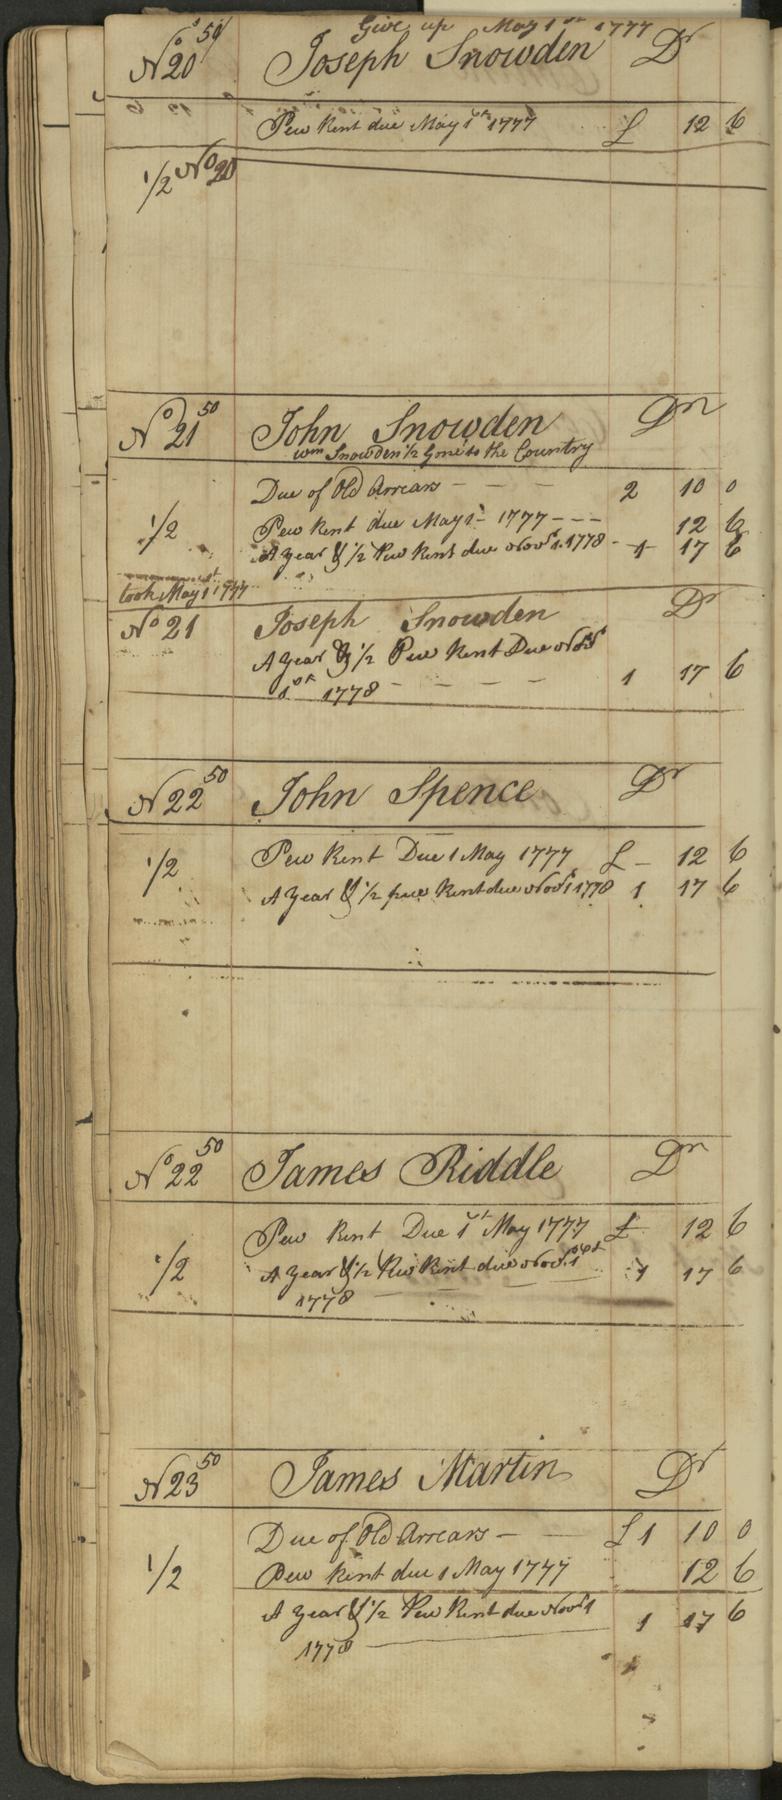 Give up May 1st 1777
No 20 50/ Joseph Snowden Dr
Pew Rent due May 1st 1777 £ 12 6
1/2 No 20
No 21 50 John Snowden Dr
Wm Snowden 1/2 Gone to the Country
Due of Old Arrears - - - 2 10 0
1/2 Pew Rent due May 1 - 1777 - - - 12 6
A year & 1/2 Pew Rent due Novr 1. 1778 - 1 17 6
took May 1st 1777
No 21 Joseph Snowden Dr
A year & 1/2 Pew Rent Due Novr
1st 1778 - - - - 1 17 6
No 22 50 John Spence Dr
1/2 Pew Rent Due 1 May 1777 £ - 12 6
A year & 1/2 pew Rent due Novr 1 1778 1 17 6
No 22 50 James Riddle Dr
Pew Rent Due 1st May 1777 £ 12 6
1/2 A year & 1/2 Pew Rent due Novr 1st 1 17 6
1778
No 23 50 James Martin Dr
Due of Old Arrears - £ 1 10 0
1/2 Pew Rent due 1 May 1777 12 6
A year & 1/2 Pew Rent due Novr 1 1 17 6
1778